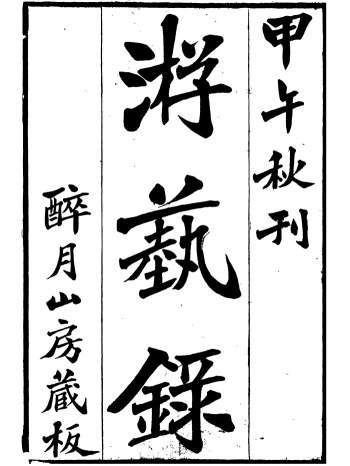 甲午秋刊
游藝錄
醉月山房藏板